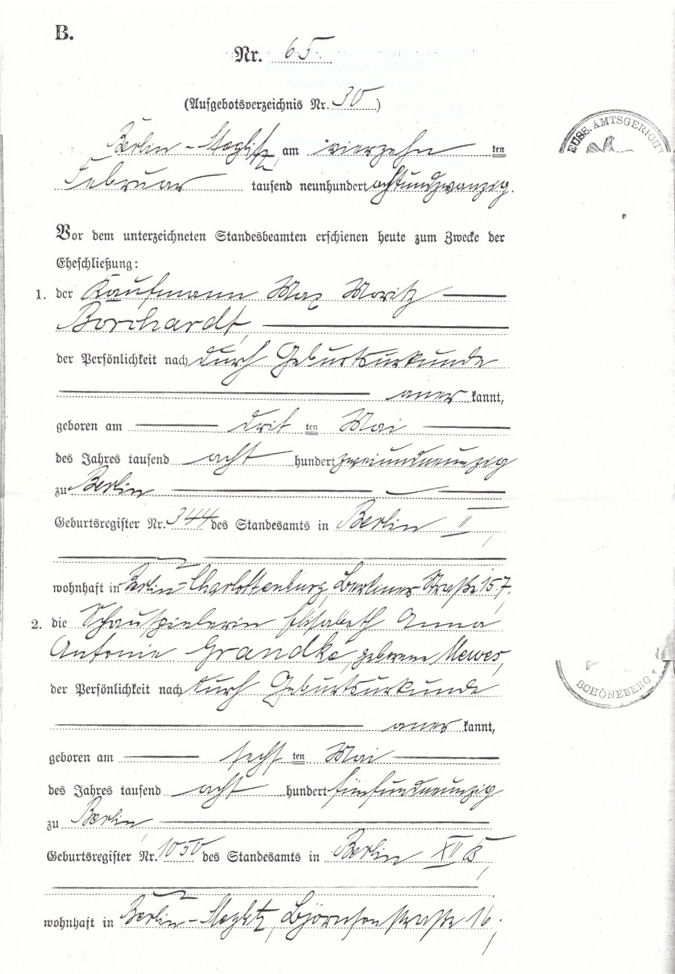 B.
Nr. 65
(Aufgebotsverzeichnis Nr. 30)
Berlin-Steglitz am vierzehn ten
Februar tausend neunhundert achtundzwanzig.
Vor dem unterzeichneten Standesbeamten erschienen heute zum Zwecke der
Eheschließung:
1. der Kaufmann Max Moritz
Borchardt,
der Persönlichkeit nach durch Geburtsurkunde
aner kannt,
geboren am drit ten Mai
des Jahres tausend acht hundert zweiundneunzig
zu Berlin
Geburtsregister Nr. 344 des Standesamts in Berlin II,
wohnhaft in Berlin-Charlottenburg, Berliner Straße 157,
2. die Schauspielerin Elisabeth Anna
Antonie Grandke, geborene Mewes,
der Persönlichkeit nach durch Geburtsurkunde
aner kannt,
geboren am sechs ten Mai
des Jahres tausend acht hundert fünfundneunzig
zu Berlin,
Geburtsregister Nr. 1050 des Standesamts in Berlin XII B,
wohnhaft in Berlin-Steglitz, Björnsonstraße 16,
EUSS. AMTSGERICHT
SCHÖNEBERG